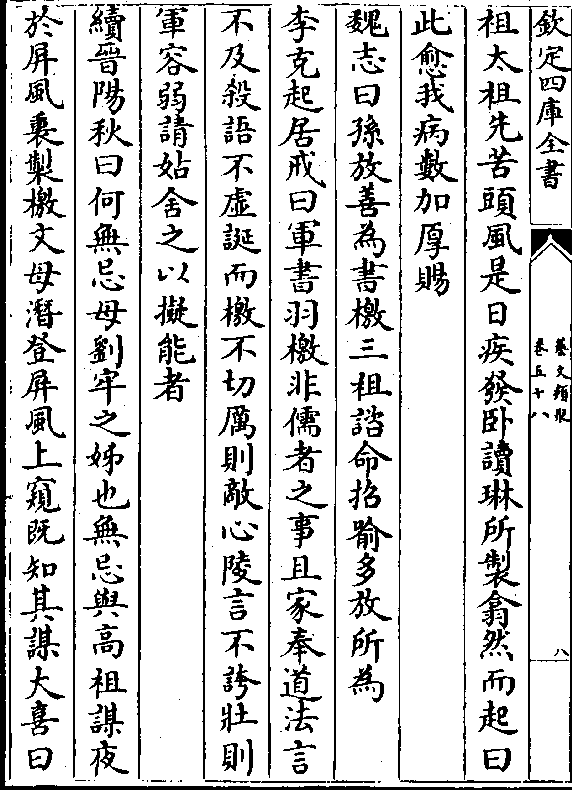 欽定四庫全書
藝文類聚
卷五十八
八
祖太祖先苦頭風是日疾發卧讀琳所製翕然而起曰
此愈我病數加厚賜
魏志曰孫放善為書檄三祖詔命招喻多放所為
李克起居戒曰軍書羽檄非儒者之事且家奉道法言
不及殺語不虛誕而檄不切厲則敵心陵言不誇壯則
軍容弱請姑舍之以擬能者
續晉陽秋曰何無忌母劉牢之姊也無忌與高祖謀夜
於屏風裏製檄文母潛登屏風上窺既知其謀大喜曰